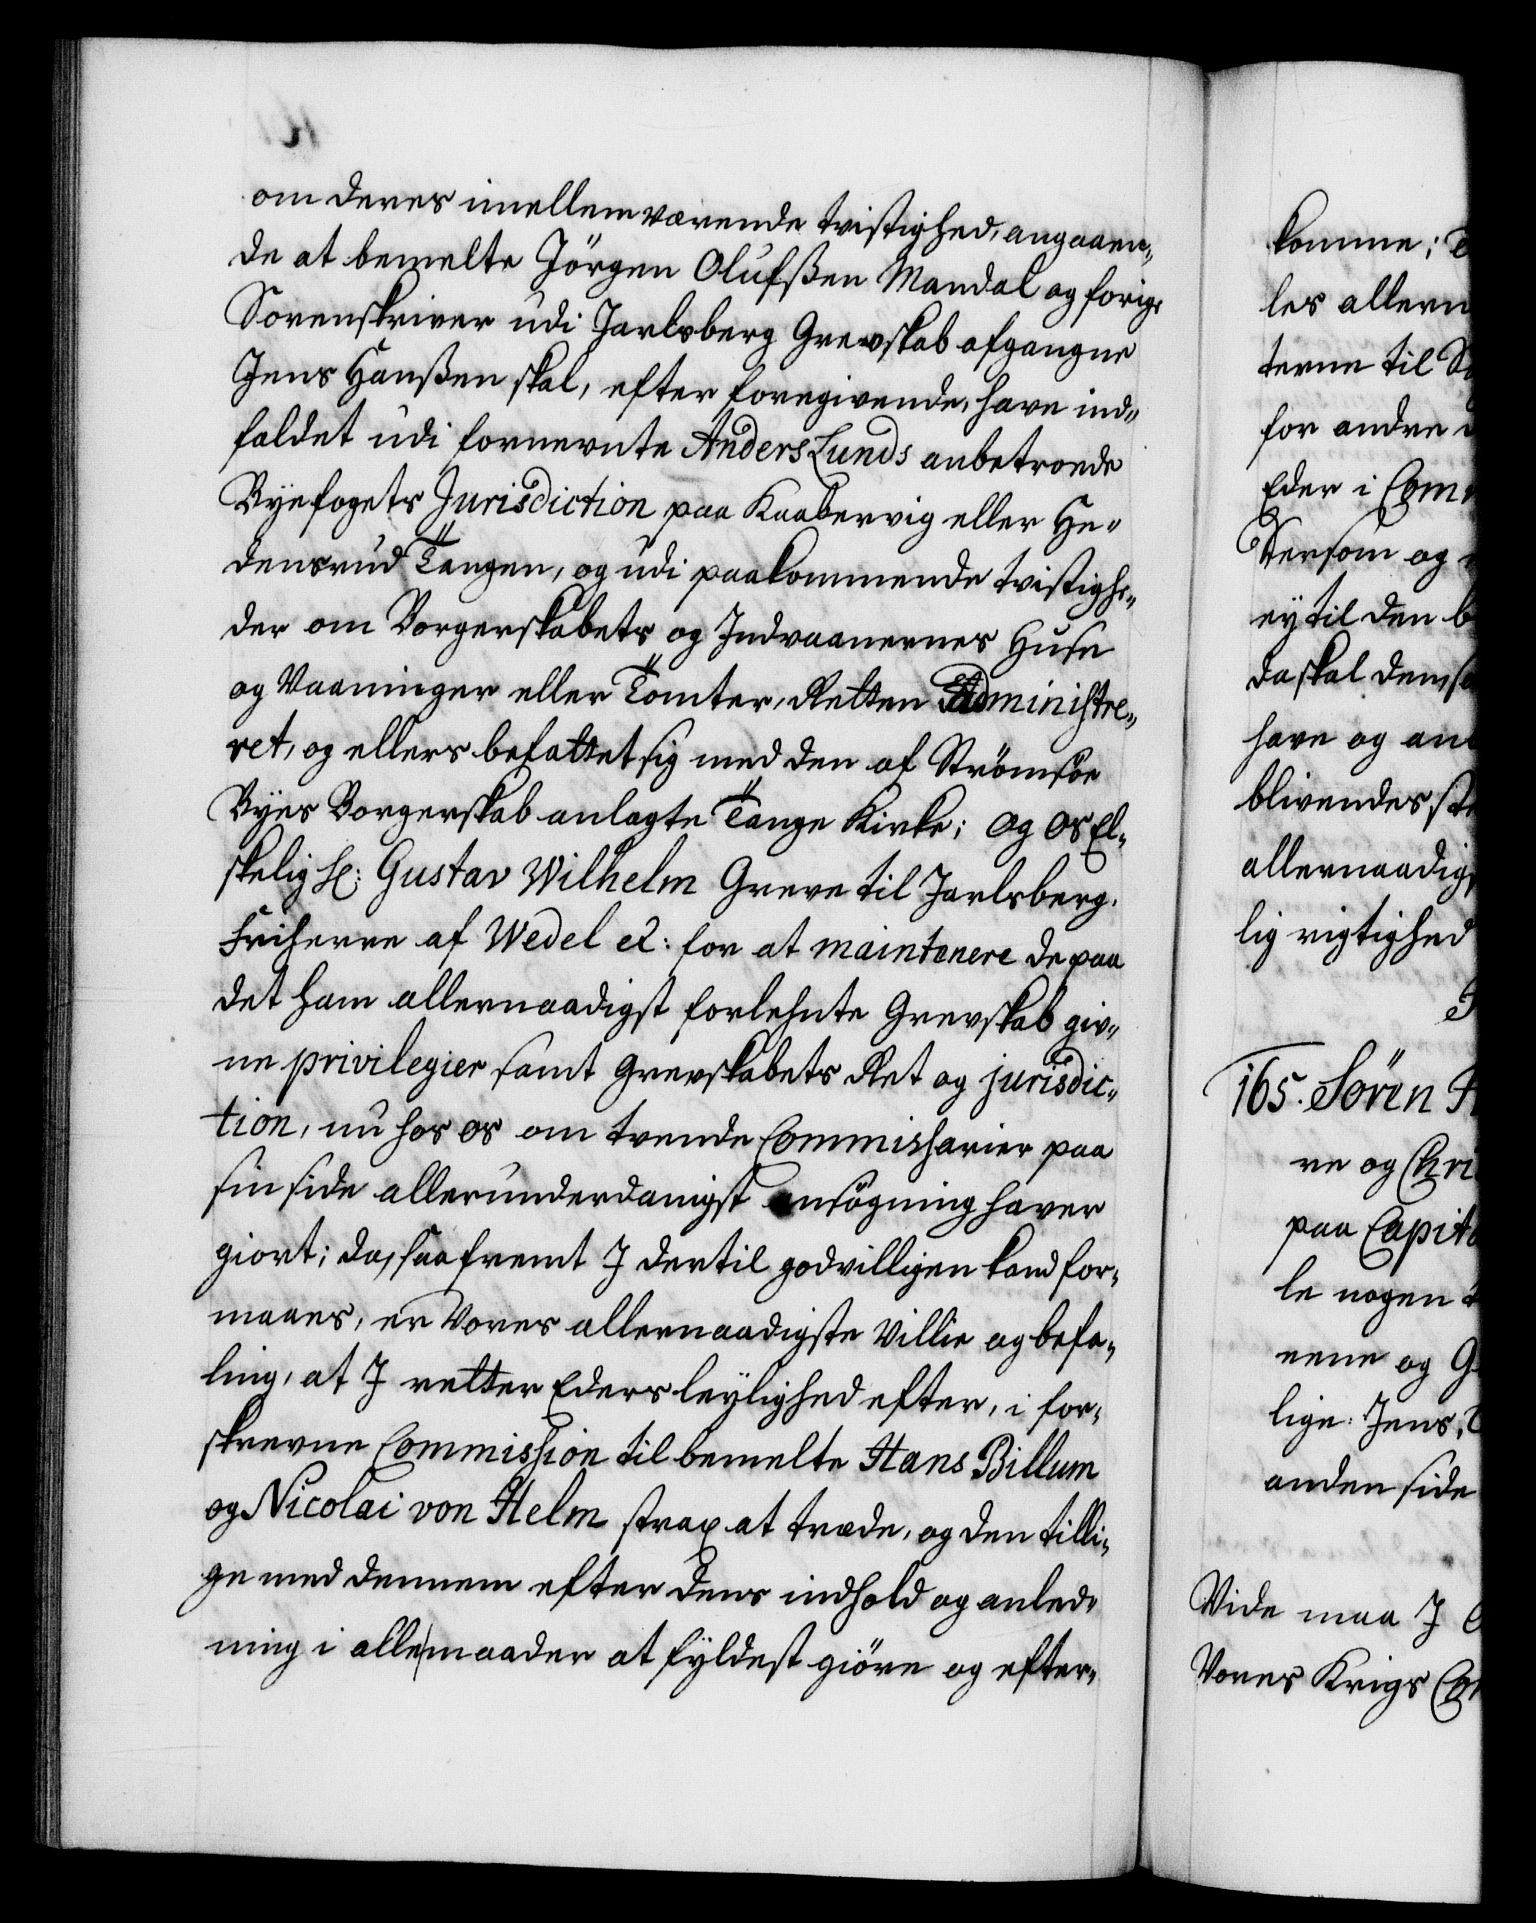 om deres imellem værende tvistighed, angaaen¬
de at bemelte Jörgen Olufsßen Mandal og forige
Sorenskriver udi Jarlsberg Grevskab afgangne
Jens Hanßen skal, efter foregivende, have ind¬
faldet udi fornevnte Anders Lunds anbetroede
Byefogets Jurisdiction paa Kaabervig eller He¬
densrud Tangen, og udi paakommende tvistighe¬
der om Borgerskabets og Indvaanernes Huse
og Vaaninger eller Tomter, Retten Administre¬
ret, og ellers befattet sig med den af Strömsöe
Byes Borgerskab anlagte Tange Kirke; og os El¬
skelig Hr: Gustav Wilhelm Greve til Jarlsberg,
Friherre af Wedel etc: for at maintenere de paa
det ham allernaadigst forlehnte Grevskab giv¬
ne privilegier samt Grevskabets Ret og jurisdic¬
tion, nu hos os om tvende Commissarier paa
sin side allerunderdanigst ansögning haver
giort; da, saafremt I dertil godvilligen kand for¬
maaes, er Vores allernaadigste Villie og befa¬
ling, at I retter Eders leylighed efter, i for¬
skrevne Commission til bemelte Hans Billum
og Nicolai von Helm strax at træde, og den tilli¬
ge med dennem efter dens indhold og anled¬
ning i alle maader at fyldest giöre og efter¬
komme; 
les allern
terne til
for andre
Eder i Com
Dersom og
ey til den b
da skal dem
have og an
blivendes
allernaadigs
lig rigtighed
165. Sören
re og Chri
paa Capit
le nogen
nene og
lige: Jens,
anden side
Vide maa I
Vores Krigs